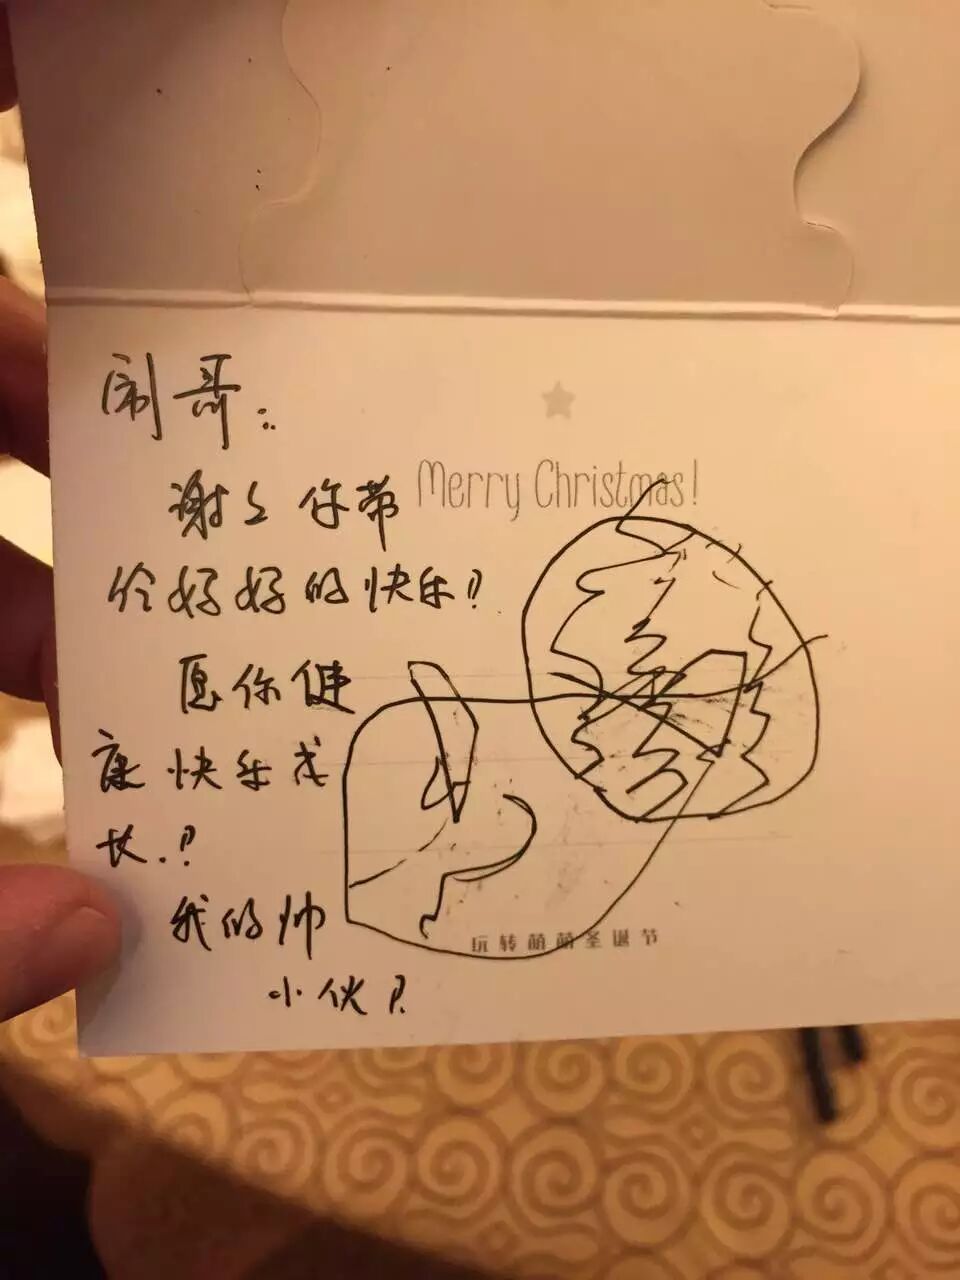 闹哥:
Merry Christmas!
谢谢你带
给好好的快乐!
愿你健
康快乐成
长!
我的帅
小伙!
玩转萌萌圣诞节